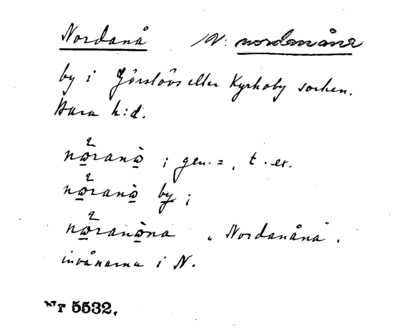 Nordanå N: nordmåna
by i Görslövs eller Kyrkoby socken.
Bara h:d.
2
nǫranǫ̀ ; gen. = , t. ex.
2
nǫranǫ̀ by ;
2
nǫranǫ̀na „ Nordanåna".
invånarna i N.
Nr 5532.